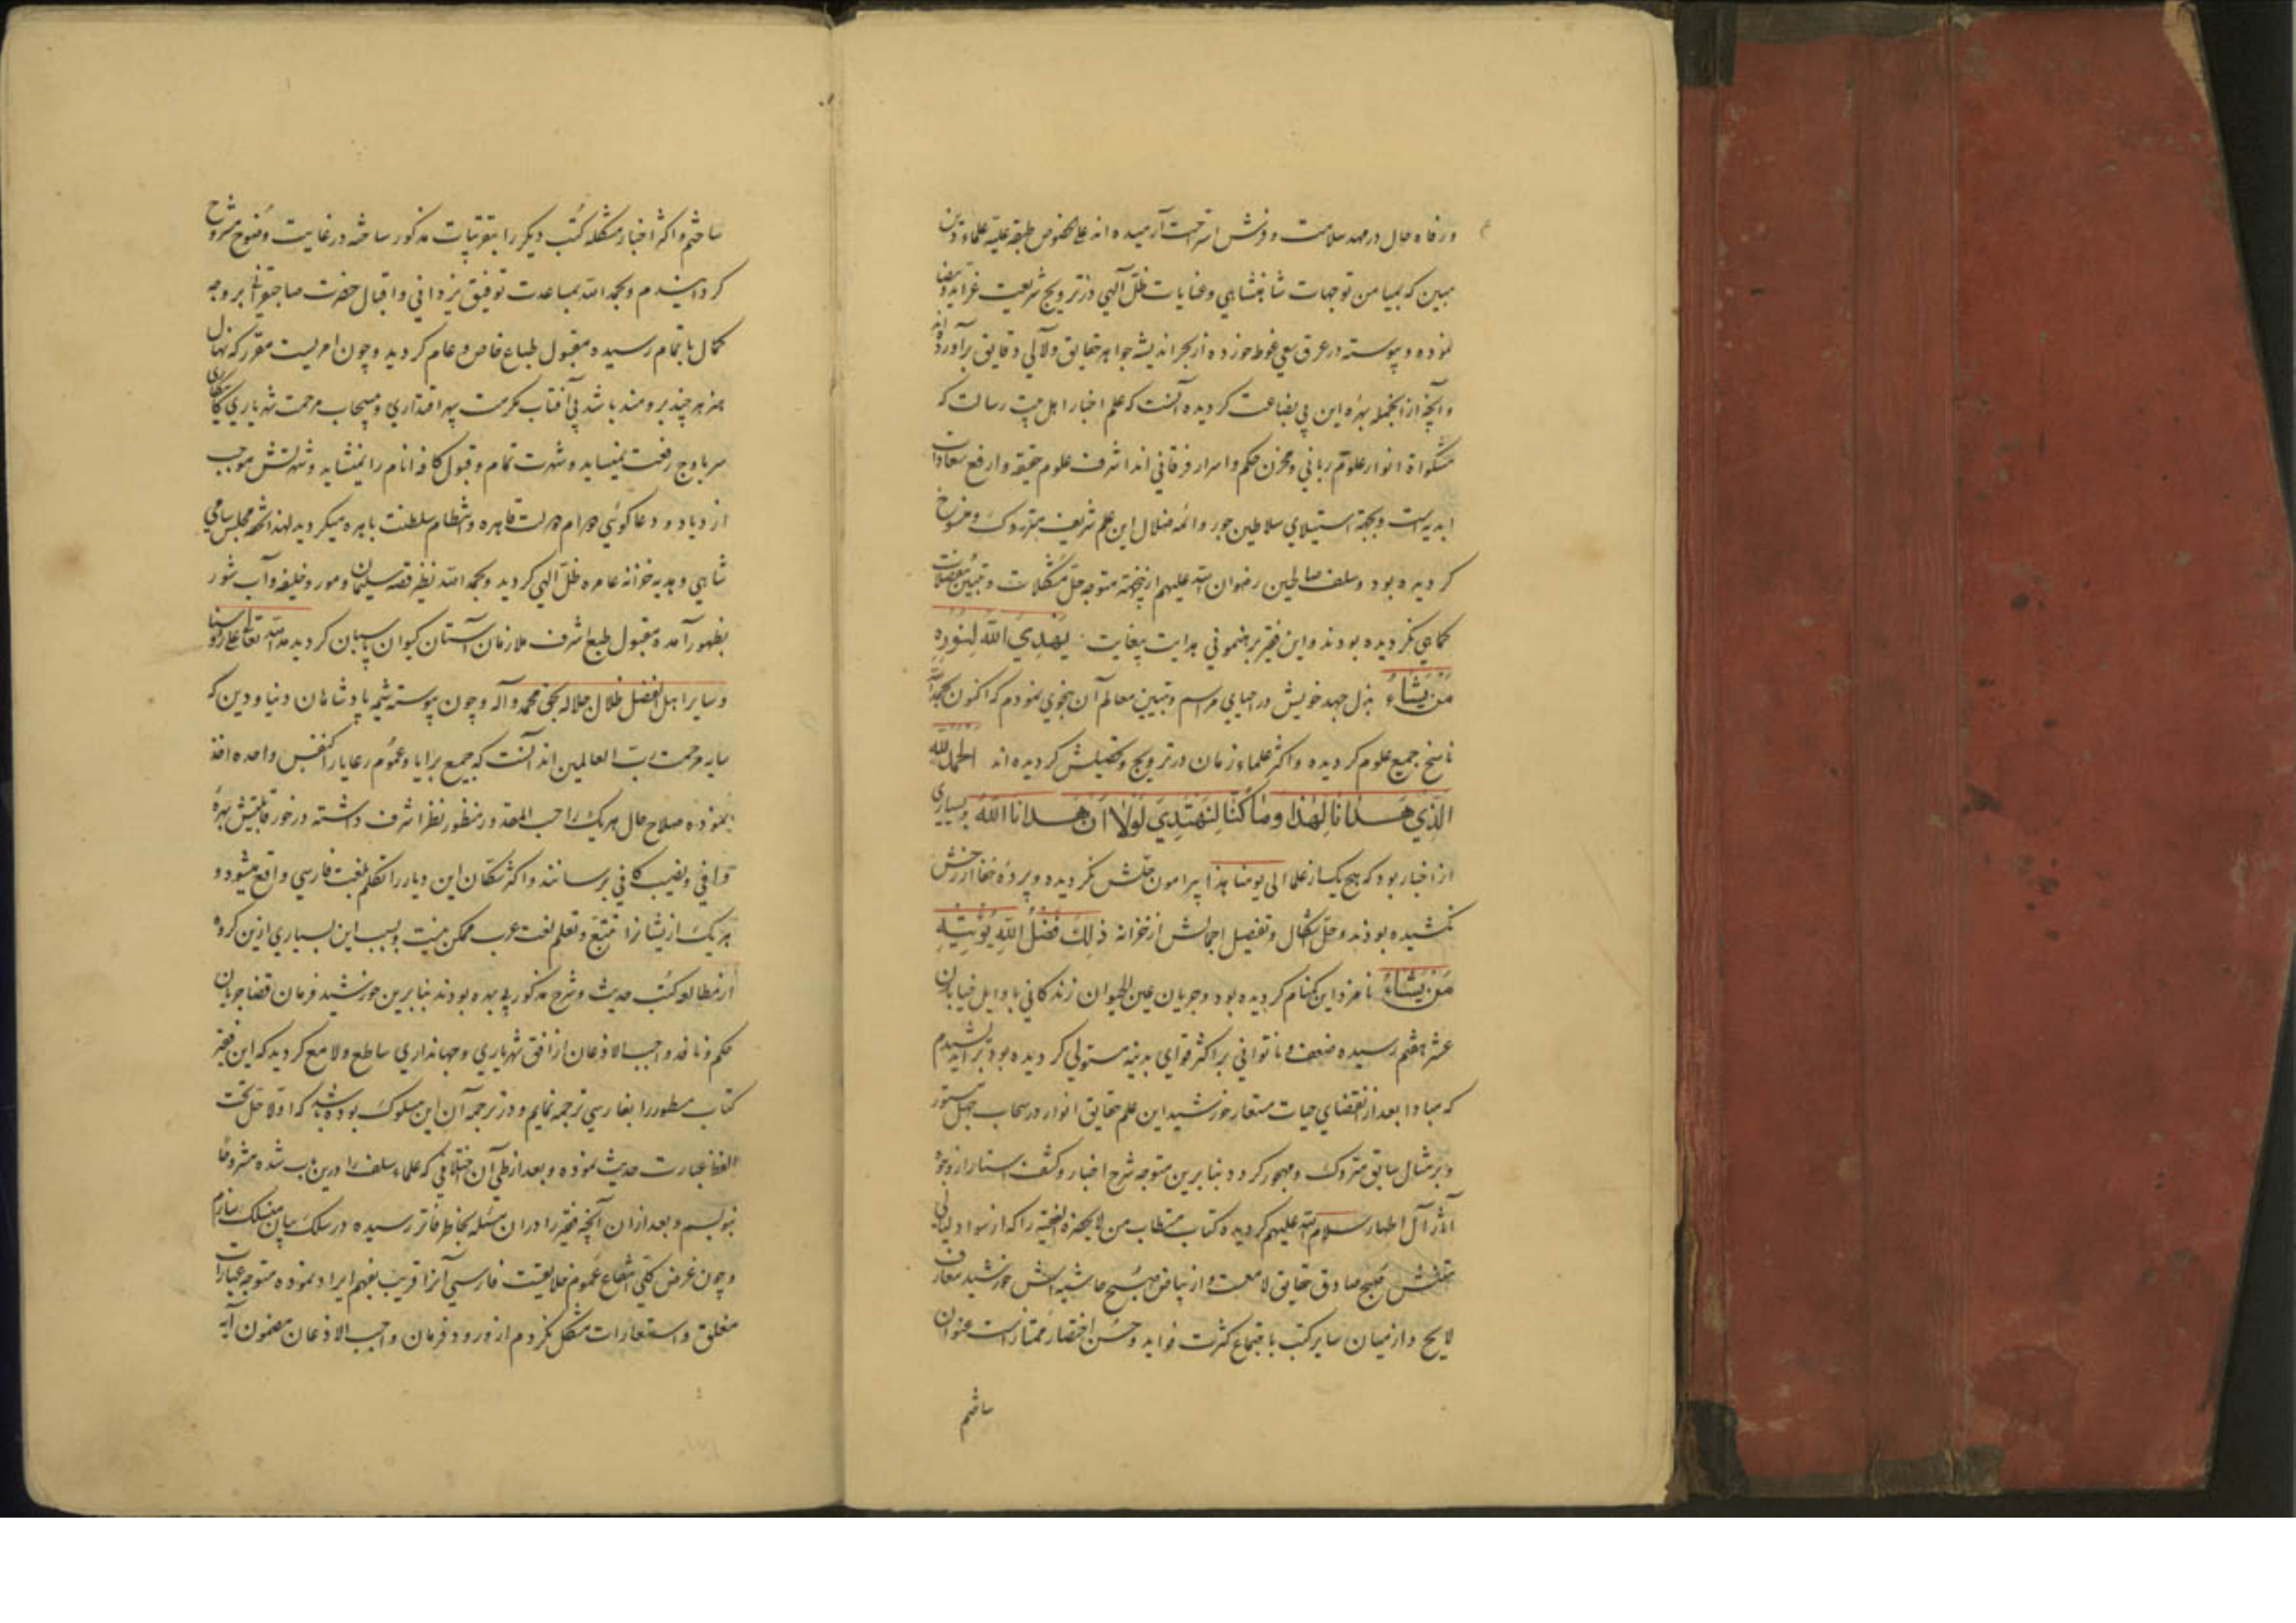 ورفاه حال در مهد سلامت و فرش استراحت آرمیده اند علی الخصوص طبقه علیه علماء دین
مبین که بمیامن توجهات شاهنشاهی و عنایات ظل آلهی در ترویج شریعت غرا ید بیضا
نموده و پیوسته در عرق سعی غوطه خورده از بحر اندیشه جواهر حقایق و لآلی دقایق برآورده اند
و آنچه از آنجمله بهره این بی بضاعت کردیده آنست که علم اخبار اهل بیت رسالت که
مشکواة انوار علوم ربانی و مخزن حکم و اسرار فرقانی اند اشرف علوم حقیقه و ارفع سعادات
ابدیه است و بجهة استیلای سلاطین جور و ائمه ضلال این علم شریف متروک و منسوخ
کردیده بود و سلف صالحین رضوان الله علیهم ازینجهته متوجه حل مشکلات و تبیین معضلات
کماهی نکردیده بودند و این فقیر برهنمونی هدایت بیغایت یَهْدِيَ اللّٰهُ لِنُورِهِ
مَنْ يَشَاءُ بذل جهد خویش در احیای مراسم و تبیین معالم آن بنحوی نمودم که اکنون بحمد الله
ناسخ جمیع علوم کردیده و اکثر علماء زمان در ترویج و تحصیلش کردیده اند الحمد لله
الَّذِي هَدَانَا لِهٰذَا وَمَا كُنَّا لِنَهْتَدِيَ لَوْلَا أَنْ هَدَانَا اللّٰهُ و بسیاری
از اخبار بود که هیچ یک از علما الی یومنا هذا پیرامون حلش نکردیده و پرده خفا از رخش
نکشیده بودند و حل اشکال و تفصیل اجمالش از خزانه ذٰلِكَ فَضْلُ اللّٰهِ يُؤْتِيهِ
مَنْ يَشَاءُ نامزد این کمنام کردیده بود و جریان عین الحیوان زندکانی باوایل خیابان
عشر هفتم رسیده ضعف و ناتوانی بر اکثر قوای بدنیه مستولی کردیده بود ترسیدم
که مبادا بعد از انقضای حیات مستعار خورشید این علم حقایق انوار در سحاب جهل مستور
و بر مثال سابق متروک و مهجور کردد بنابرین متوجه شرح اخبار و کشف استار از وجوه
آثار آل اطهار سلام الله علیهم کردید و کتاب مستطاب من لا یحضره الفقیه را که از سواد لیالی
نقشش صبح صادق حقایق لامعست و از بیاض صبح حاشیه اش خورشید معارف
لایح و از میان سایر کتب باجتماع کثرت فواید و حسن اختصار ممتاز است عنوان
ساختم
ساختم و اکثر اخبار مشکله کتب دیکر را بتقریبات مذکور ساخته در غایت وضوح مشروح
کردانیدم و بحمد الله بمساعدت توفیق یزدانی و اقبال حضرت صاحبقرانی بر وجه
کمال باتمام رسیده مقبول طباع خاص و عام کردید و چون امریست مقرر که نهال
هنر هر چند برومند باشد بی آفتاب مکرمت سپهر اقتداری و سحاب مرحمت شهریاری
سر باوج رفعت نمیساید و شهرت تمام و قبول کافه انام را نمیشاید و شهرتش موجب
ازدیاد و دعاکوئی دوام دولت قاهره و انتظام سلطنت باهره میکردید لهذا تحفه مجلس سامی
شاهی و هدیه خزانه عامره ظل آلهی کردید و بحمد الله نظیر قصه سلیمان و مور و خلیفه و آب شور
بظهور آمده مقبول طبع اشرف ملازمان آستان کیوان پاسبان کردید
و سایر اهل الفضل ظلال جلاله بحق محمد و آله و چون پیوسته شیمه پادشاهان دنیا و دین که
سایه مرحمت رب العالمین اند آنست که جمیع برایا و عموم رعایا را کنفس واحده اخذ
نموده صلاح حال هر یک را حسب المقدور منظور نظر اشرف داشته در خور قابلیتش بهره
وافی و نصیب کافی برسانند و اکثر سکان این دیار را تکلم بلغت فارسی واقع میشود و
هر یک از ایشان را تتبع و تعلم لغت عرب ممکن نیست و بسبب این بسیاری ازین کروه
از مطالعه کتب حدیث و شرح مذکور بی بهره بودند بنابرین خورشید فرمان قضا جریان
حکم و نافذ واجب الاذعان از افق شهریاری و جهانداری ساطع و لامع کردید که این فقیر
کتاب مسطور را بفارسی ترجمه نمایم و در ترجمه آن این مسلوک بوده باشد که اولا حل تحت
اللفظ عبارت حدیث نموده و بعد از طی آن اختلافی که علماء سلف را درین باب شده مشروحا
بنویسم و بعد از ان آنچه فقیر را در ان مسئله بخاطر فاتر رسیده در سلک بیان منسلک سازم
و چون غرض کلی انتفاع عموم خلایقست فارسی آنرا قریب بفهم ایراد نموده متوجه عبارات
مغلق و استعارات مشکل نکردم از ورود فرمان واجب الاذعان مضمون آیه